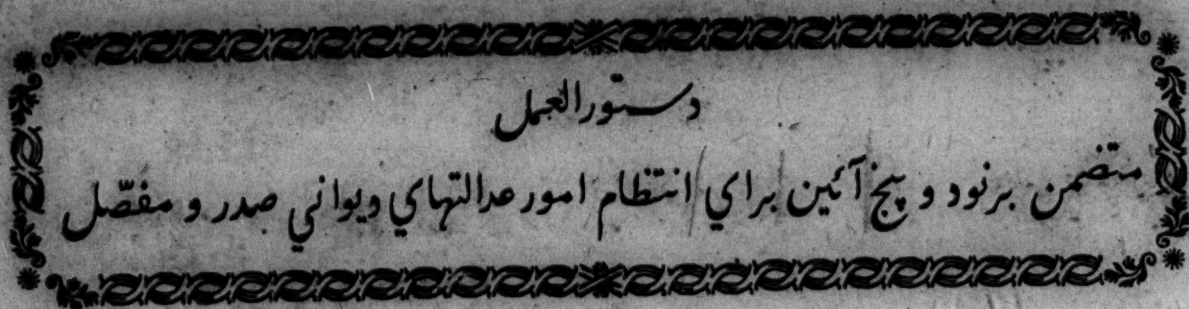 دستورالعمل
متضمن برنود و پنج آئین براي انتظام امور عدالتهاي دیواني صدر و مفصّل